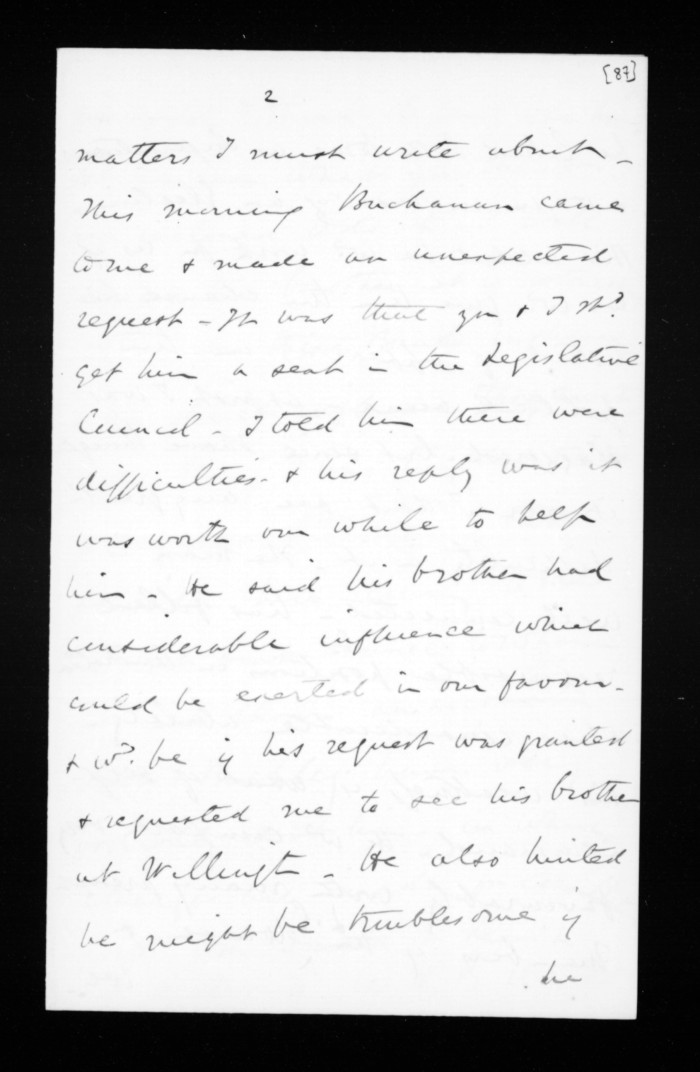 [87]
2
matters I must write about -
This morning Buchanan came
to me & made an unexpected
request - It was that you & I shd
get him a seat in the Legislative
Council - I told him there were
difficulties - & his reply was it
was worth our while to help
him - He said his brother had
considerable influence which
could be exerted in our favour -
& wd. be if his request was granted
& requested me to see his brother
at Wellingt - He also hinted
he might be troublesome if
he